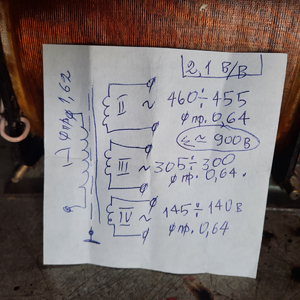 2,1 В/В
I ф пр. 1,62
II ~ 460÷455
ф пр. 0,64
≤ ~ 900 В
III ~ 305÷300
ф пр. 0,64.
IV ~ 145÷140 В
ф пр. 0,64